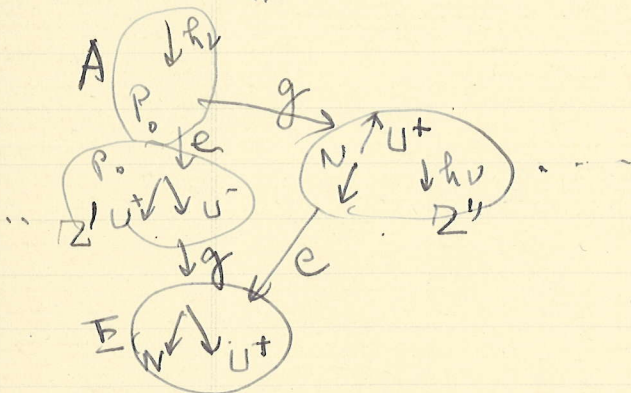 A hν
P₀ g
e
P₀ N U⁺ hν
Z' U⁺ U⁻ Z''
g e
E N U⁺